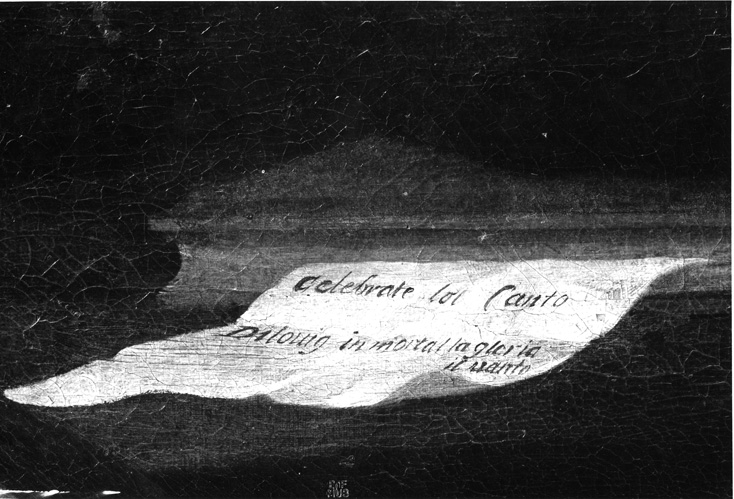 Celebrate lol Canto
Di louig in mortal la gloria
il uanto